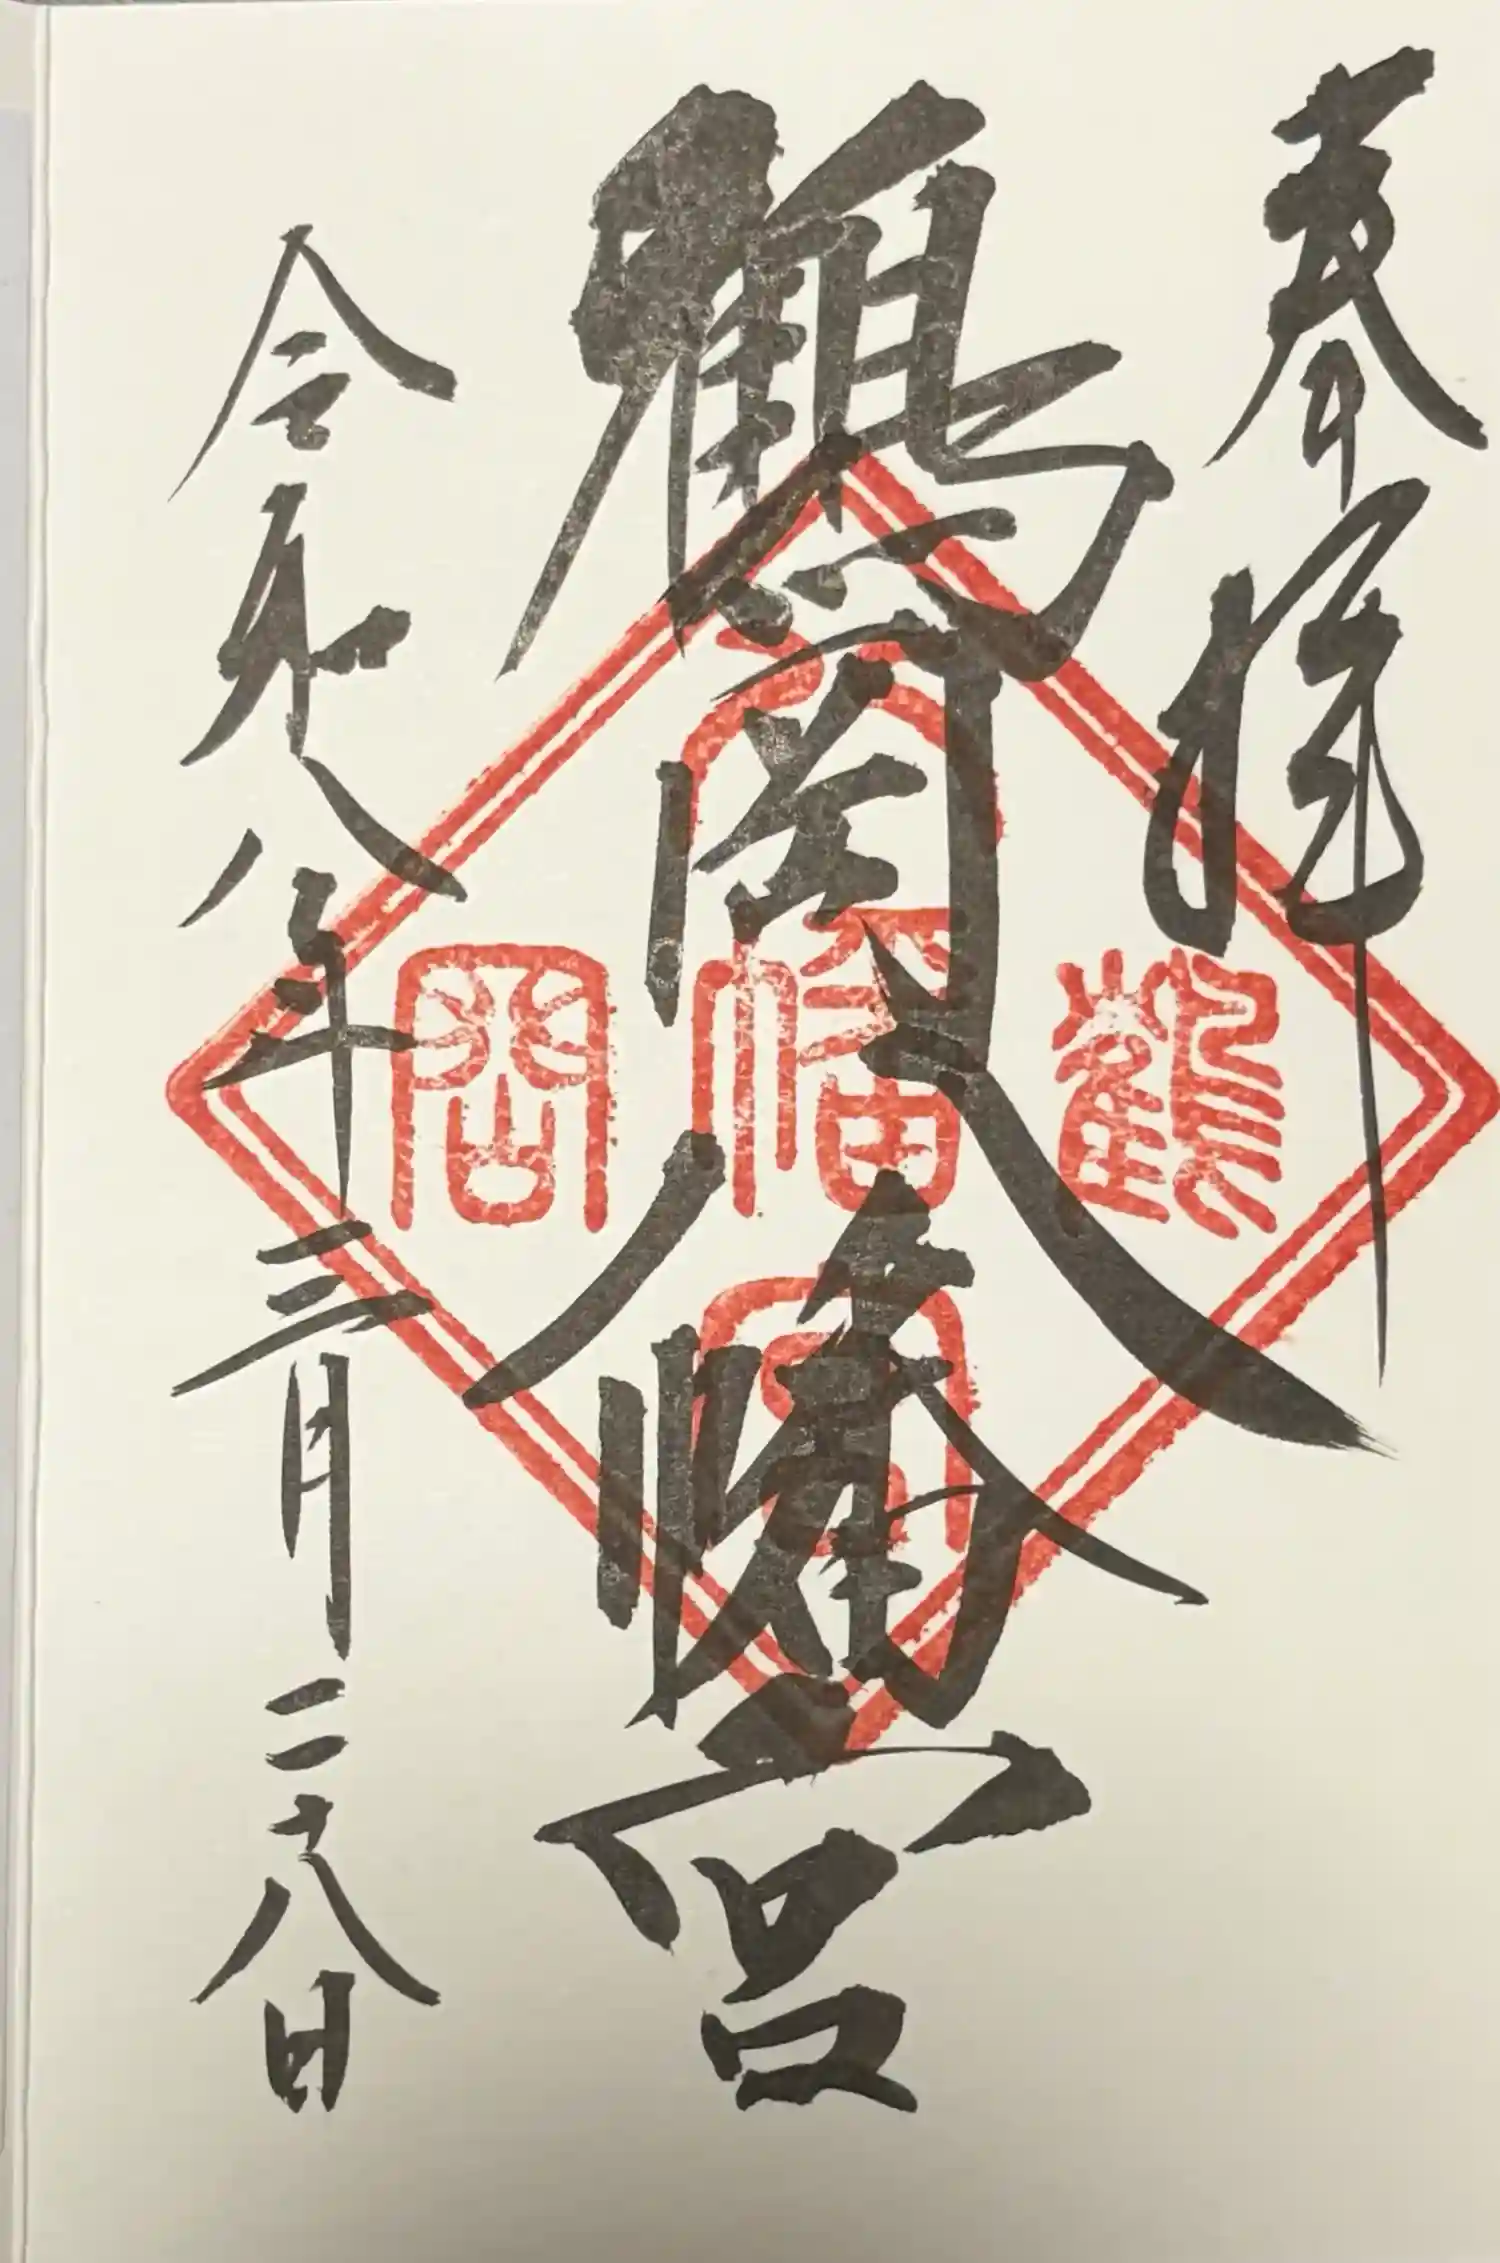 奉拝
鶴岡八幡宮
令和八年三月二十八日
鶴
八幡宮
岡